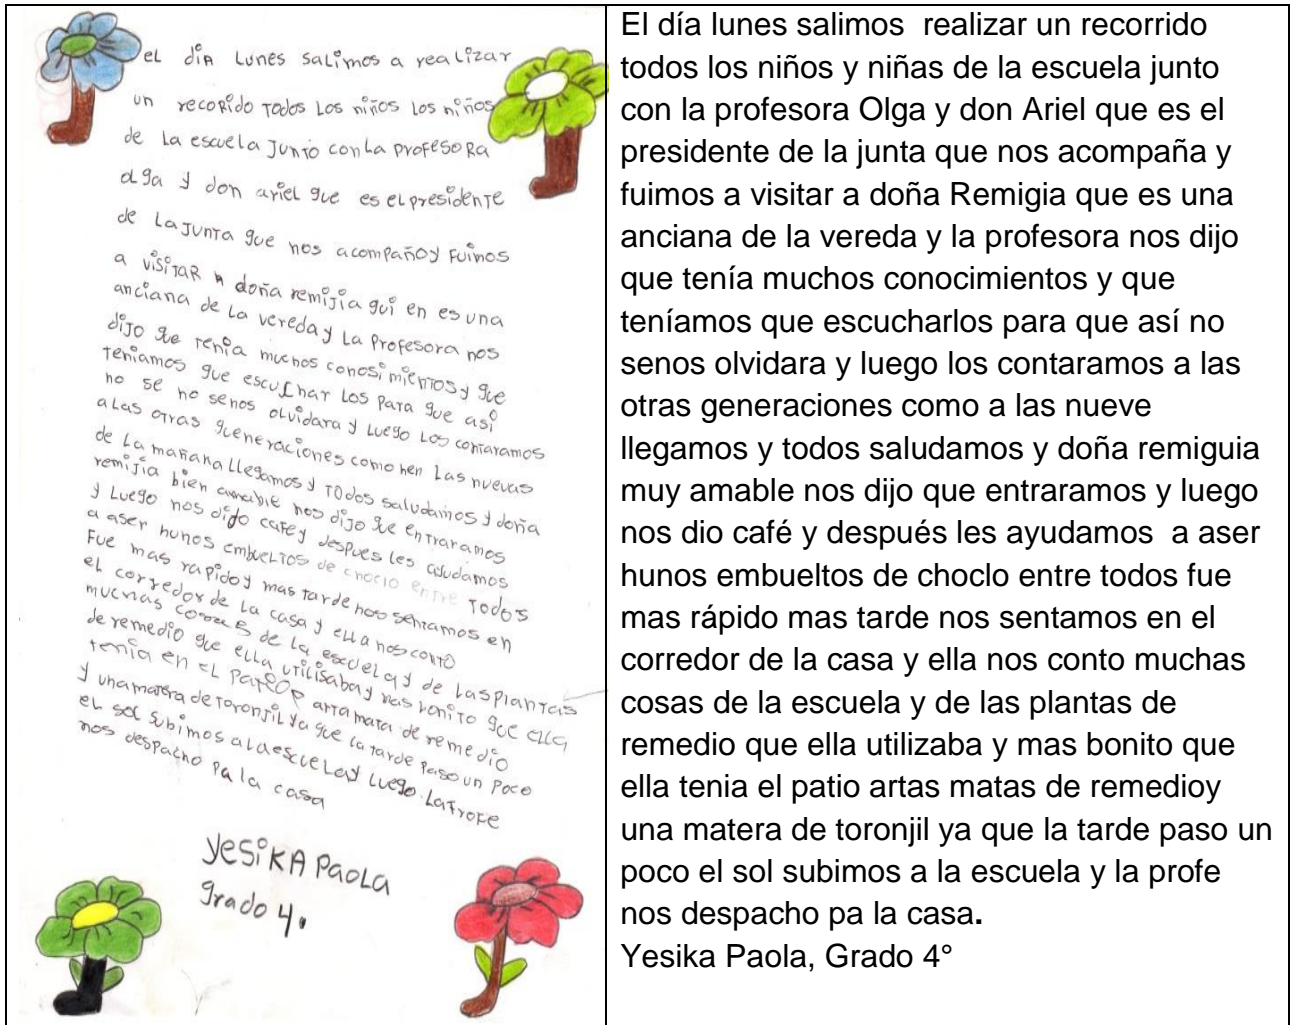 eL dia Lunes salimos a realizar
un recorido Todos Los niños Los niños
de La escuela Junto con La profesora
olga y don ariel que es el presidente
de La Junta que nos acompaño y fuimos
a visitar a doña remijia qui en es una
anciana de La vereda y La Profesora nos
dijo que tenia muchos conosimientos y que
teniamos que escuchar Los Para que asi
no se no senos olvidara y Luego Los contaramos
a Las otras gueneraciones como hen Las nuevas
de La mañana LLegamos y Todos saludamos y doña
remijia bien amable nos dijo que entraramos
y Luego nos dijo cafe y despues Les ayudamos
a aser hunos embueltos de choclo entre Todos
Fue mas rapido y mas tarde nos sentamos en
el corredor de La casa y eLLa nos conto
muchas cosas de La escuela y de Las plantas
de remedio que ella utilisaba y mas bonito que ella
tenia en el mata de remedio
y una matera de toronjil ya que la tarde paso un poco
el sol subimos a la escuela y Luego La Profe
nos despacho pa la casa
Yesika Paola
grado 4.
El día lunes salimos  realizar un recorrido
todos los niños y niñas de la escuela junto
con la profesora Olga y don Ariel que es el
presidente de la junta que nos acompaña y
fuimos a visitar a doña Remigia que es una
anciana de la vereda y la profesora nos dijo
que tenía muchos conocimientos y que
teníamos que escucharlos para que así no
senos olvidara y luego los contaramos a las
otras generaciones como a las nueve
llegamos y todos saludamos y doña remiguia
muy amable nos dijo que entraramos y luego
nos dio café y después les ayudamos  a aser
hunos embueltos de choclo entre todos fue
mas rápido mas tarde nos sentamos en el
corredor de la casa y ella nos conto muchas
cosas de la escuela y de las plantas de
remedio que ella utilizaba y mas bonito que
ella tenia el patio artas matas de remedioy
una matera de toronjil ya que la tarde paso un
poco el sol subimos a la escuela y la profe
nos despacho pa la casa.
Yesika Paola, Grado 4°